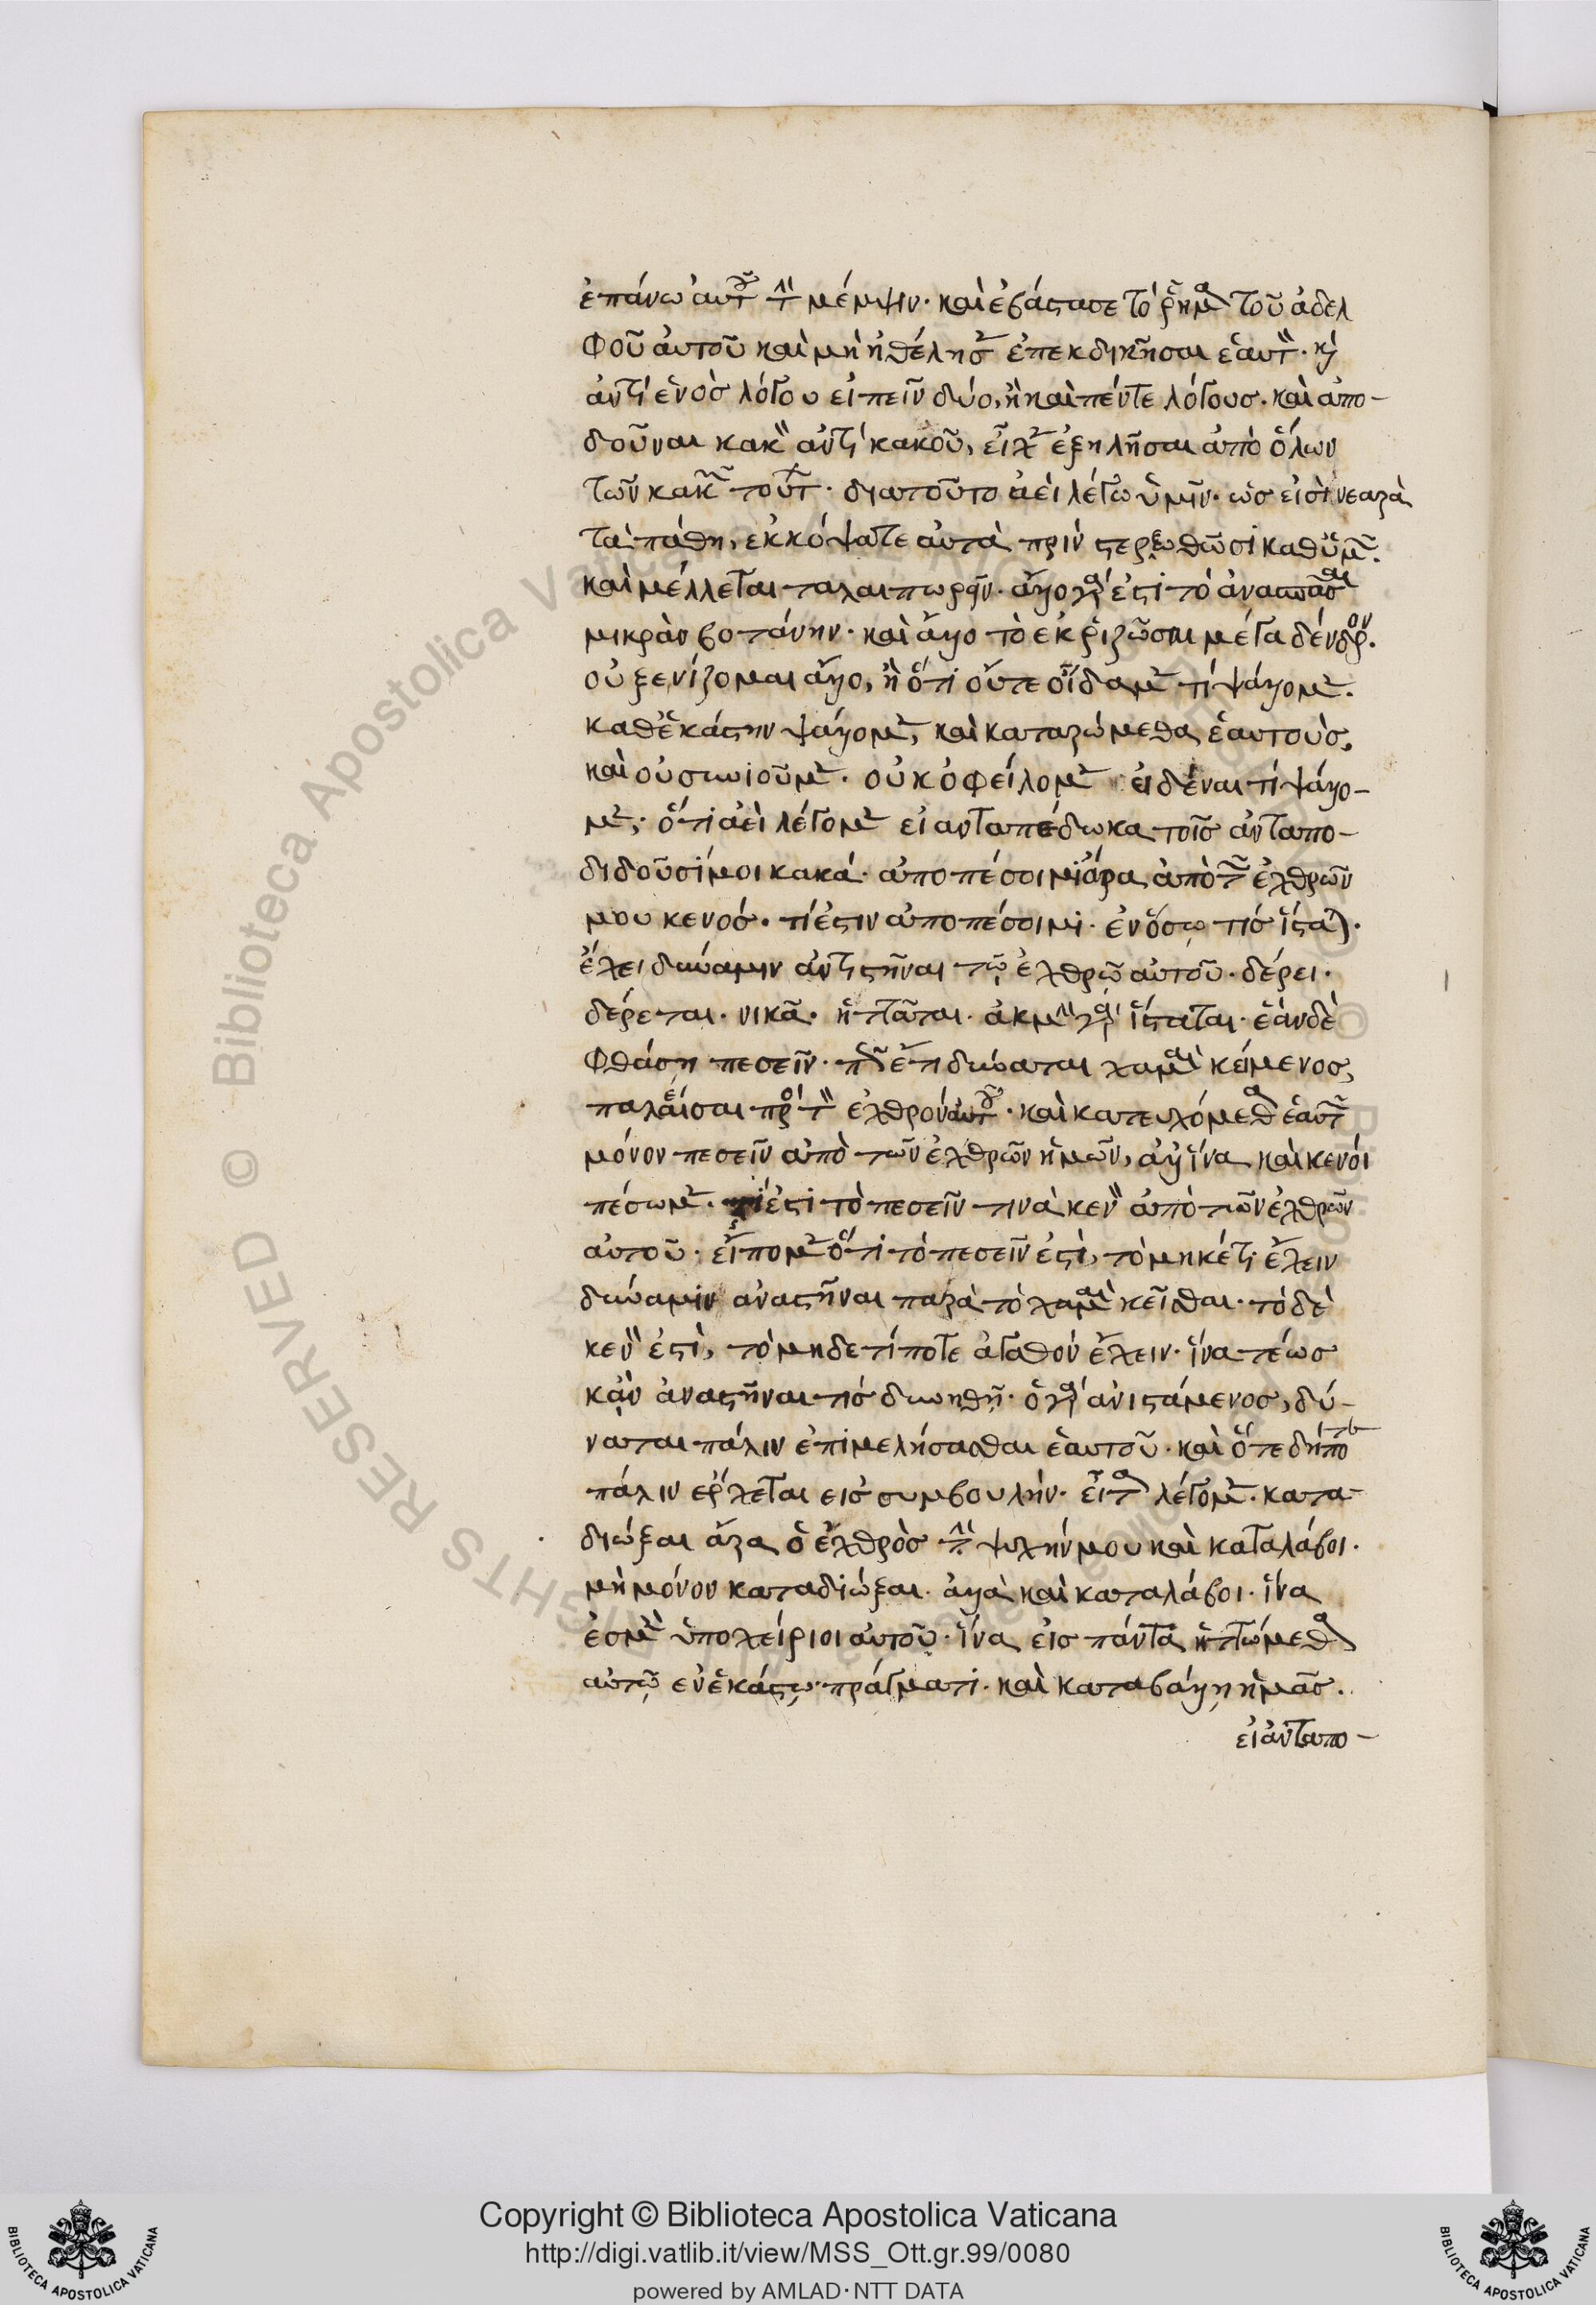 ἐπάνω αὐτοῦ τὴν μέμψιν· καὶ ἐβάστασε τὸ ῥῆμα τοῦ ἀδελ
φοῦ αὐτοῦ καὶ μὴ ἠθέλησεν ἐπεκδικῆσαι ἑαυτόν· καὶ
ἀντὶ ἑνὸς λόγου εἰπεῖν δύο, ἢ καὶ πέντε λόγους· καὶ ἀπο-
δοῦναι κακὸν ἀντὶ κακοῦ, εἶχεν ἐξηλῆσαι ἀπὸ ὅλων
τῶν κακῶν τούτων· διατοῦτο ἀεὶ λέγω ὑμῖν· ὡς εἰσὶ νεαρὰ
τὰ πάθη, ἐκκόψατε αὐτὰ πρὶν στερεωθῶσι καθ' ὑμῶν·
καὶ μέλλεται ταλαιπωρῆν· ἄλλο γάρ ἐστι τὸ ἀνασπᾶσαι
μικρὰν βοτάνην· καὶ ἄλλο τὸ ἐκριζῶσαι μέγα δένδρον.
οὐ ξενίζομαι ἄλλο, ἢ ὅτι οὔτε οἴδαμεν τί ψάλλομεν.
καθ' ἑκάστην ψάλλομεν, καὶ καταρώμεθα ἑαυτούς,
καὶ οὐ συνιοῦμεν· οὐκ ὀφείλομεν εἰδέναι τί ψάλλο-
μεν· ὅτι ἀεὶ λέγομεν εἰ ανταπέδωκα τοῖς ἀνταπο-
διδοῦσί μοι κακά· ἀποπέσοιμι ἄρα ἀπὸ τῶν ἐχθρῶν
μου κενός. τί ἐστιν ἀποπέσοιμι· ἐν ὅσῳ τίς ἵσταται.
ἔχει δύναμιν ἀντιστῆναι τῷ ἐχθρῷ αὐτοῦ· δέρει·
δέρεται· νικᾶ· ἡττᾶται· ἀκμὴν γὰρ ἵσταται· ἐὰν δὲ
φθάση πεσεῖν· πῶς ἔτι δύναται χαμαὶ κείμενος,
παλαίσαι πρὸς τὸν ἐχθρόν αὐτοῦ· καὶ κατευχόμεθα ἑαυτῶν
μόνον πεσεῖν ἀπὸ τῶν ἐχθρῶν ἡμῶν, ἀλλ' ἵνα καὶ κενοὶ
πέσωμεν. τί ἐστι τὸ πεσεῖν τινὰ κενὸν ἀπὸ τῶν ἐχθρῶν
αὐτοῦ· εἴπομεν ὅτι τὸ πεσεῖν ἐστὶ, τὸ μηκέτι ἔχειν
δύναμιν ἀναστῆναι παρὰ τὸ χαμαὶ κεῖσθαι· τὸ δὲ
κενὸν ἐστὶ, τὸ μηδετίποτε ἀγαθὸν ἔχειν· ἵνα τέως
κἂν ἀναστῆναι τίς δυνηθῇ· ὁ γὰρ ἀνιστάμενος, δύ-
ναται πάλιν ἐπιμελήσασθαι ἑαυτοῦ· καὶ ὅτε δήποτε
πάλιν ἔρχεται εἰς συμβουλήν· εἶτα λέγομεν· κατα-
διώξαι ἄρα ὁ ἐχθρὸς τὴν ψυχήν μου καὶ καταλάβοι·
μὴ μόνον καταδιώξαι· ἀλλὰ καὶ καταλάβοι· ἵνα
ἐσμὲν ὑποχείριοι αὐτοῦ· ἵνα εἰς πάντα ἡττώμεθα
αὐτῷ ἐν ἑκάστῳ πράγματι· καὶ καταβάλλῃ ἡμᾶς.
εἰ ἀνταπο-
Copyright © Biblioteca Apostolica Vaticana
http://digi.vatlib.it/view/MSS_Ott.gr.99/0080
powered by AMLAD·NTT DATA